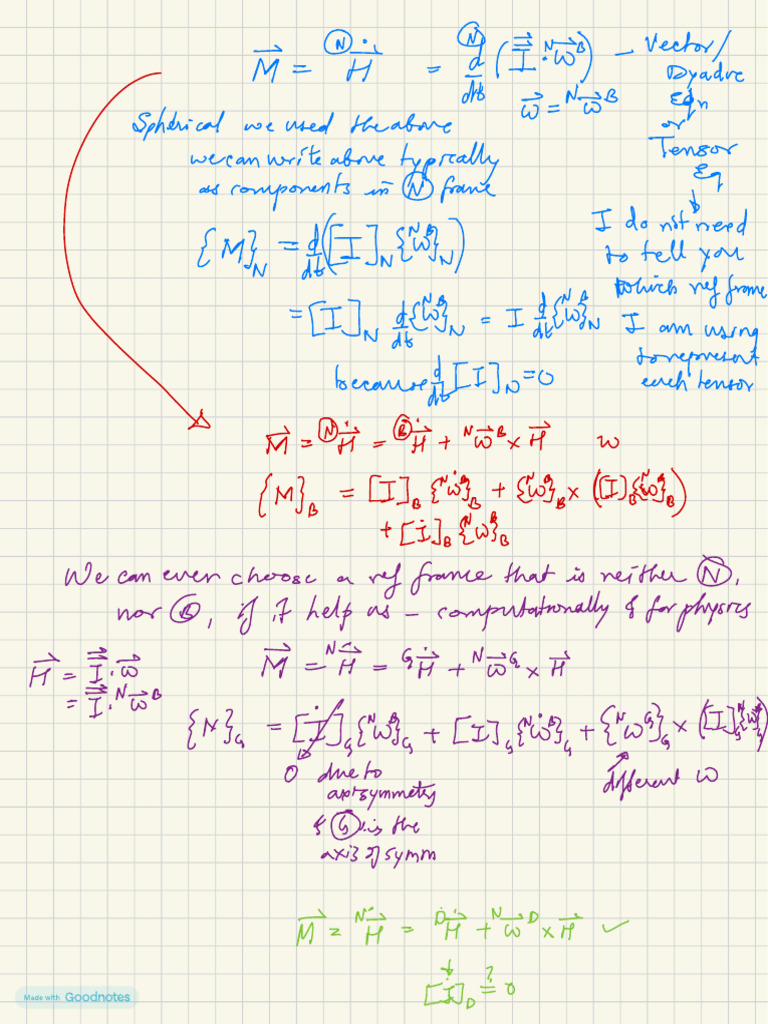 M⃗ = Ⓝ Ḣ⃗ = Ⓝ d/dt (I⃗⃗ · ᴺω⃗ᴮ) – Vector/
Dyadic
Eqn
or
Tensor
Eq
ω⃗ = ᴺω⃗ᴮ
Spherical we used the above
we can write above typically
as components in Ⓝ frame
{M}_N = d/dt([I]_N {ᴺωᴮ}_N)
= [I]_N d/dt{ᴺωᴮ}_N = I d/dt{ᴺωᴮ}_N
because d/dt [I]_N = 0
I do not need
to tell you
which ref frame
I am using
to represent
each tensor
M⃗ = Ⓝ Ḣ⃗ = Ⓑ Ḣ⃗ + ᴺω⃗ᴮ × H⃗ ω
{M}_B = [I]_B {ᴺω̇ᴮ}_B + {ᴺωᴮ}_B × ([I]_B {ᴺωᴮ}_B)
+ [İ]_B {ᴺωᴮ}_B
We can even choose a ref frame that is neither Ⓝ,
nor Ⓑ, if it help us – computationally & for physics
H⃗ = I⃗⃗ · ω⃗
= I⃗⃗ · ᴺω⃗ᴮ
M⃗ = ᴺḢ⃗ = ᴳḢ⃗ + ᴺω⃗ᴳ × H⃗
{M}_G = [İ]_G {ᴺωᴮ}_G + [I]_G {ᴺω̇ᴮ}_G + {ᴺωᴳ}_G × ([I]_G {ᴺωᴮ}_G)
0 due to
axisymmetry
& Ⓖ is the
axis of symm
different ω
M⃗ = ᴺḢ⃗ = ᴰḢ⃗ + ᴺω⃗ᴰ × H⃗ ✓
[İ]_D ?= 0
Made with Goodnotes